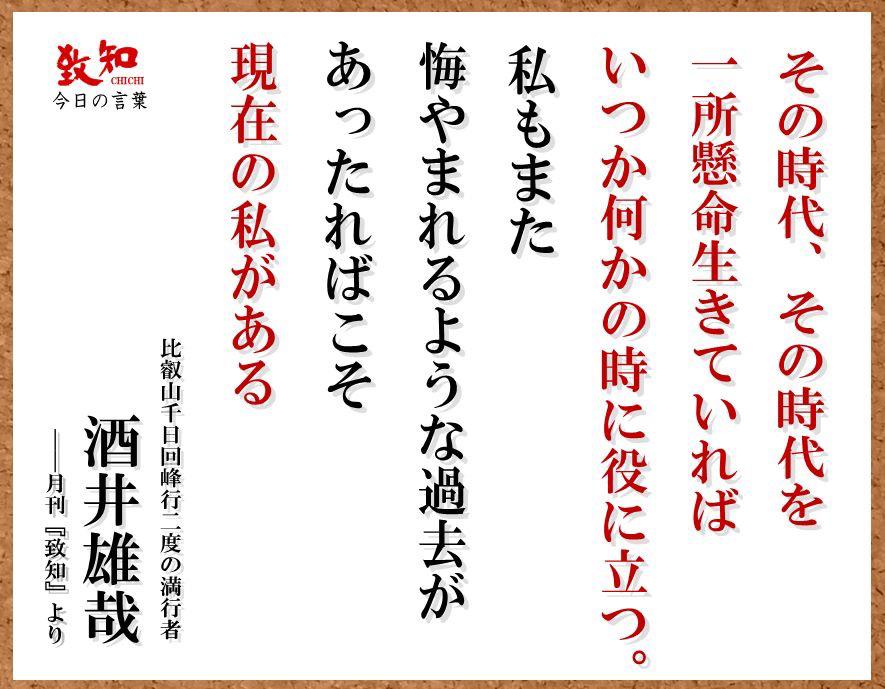 その時代、その時代を
一所懸命生きていれば
いつか何かの時に役に立つ。
私もまた
悔やまれるような過去が
あったればこそ
現在の私がある
比叡山千日回峰行二度の満行者
酒井雄哉
――月刊『致知』より
致知
CHICHI
今日の言葉